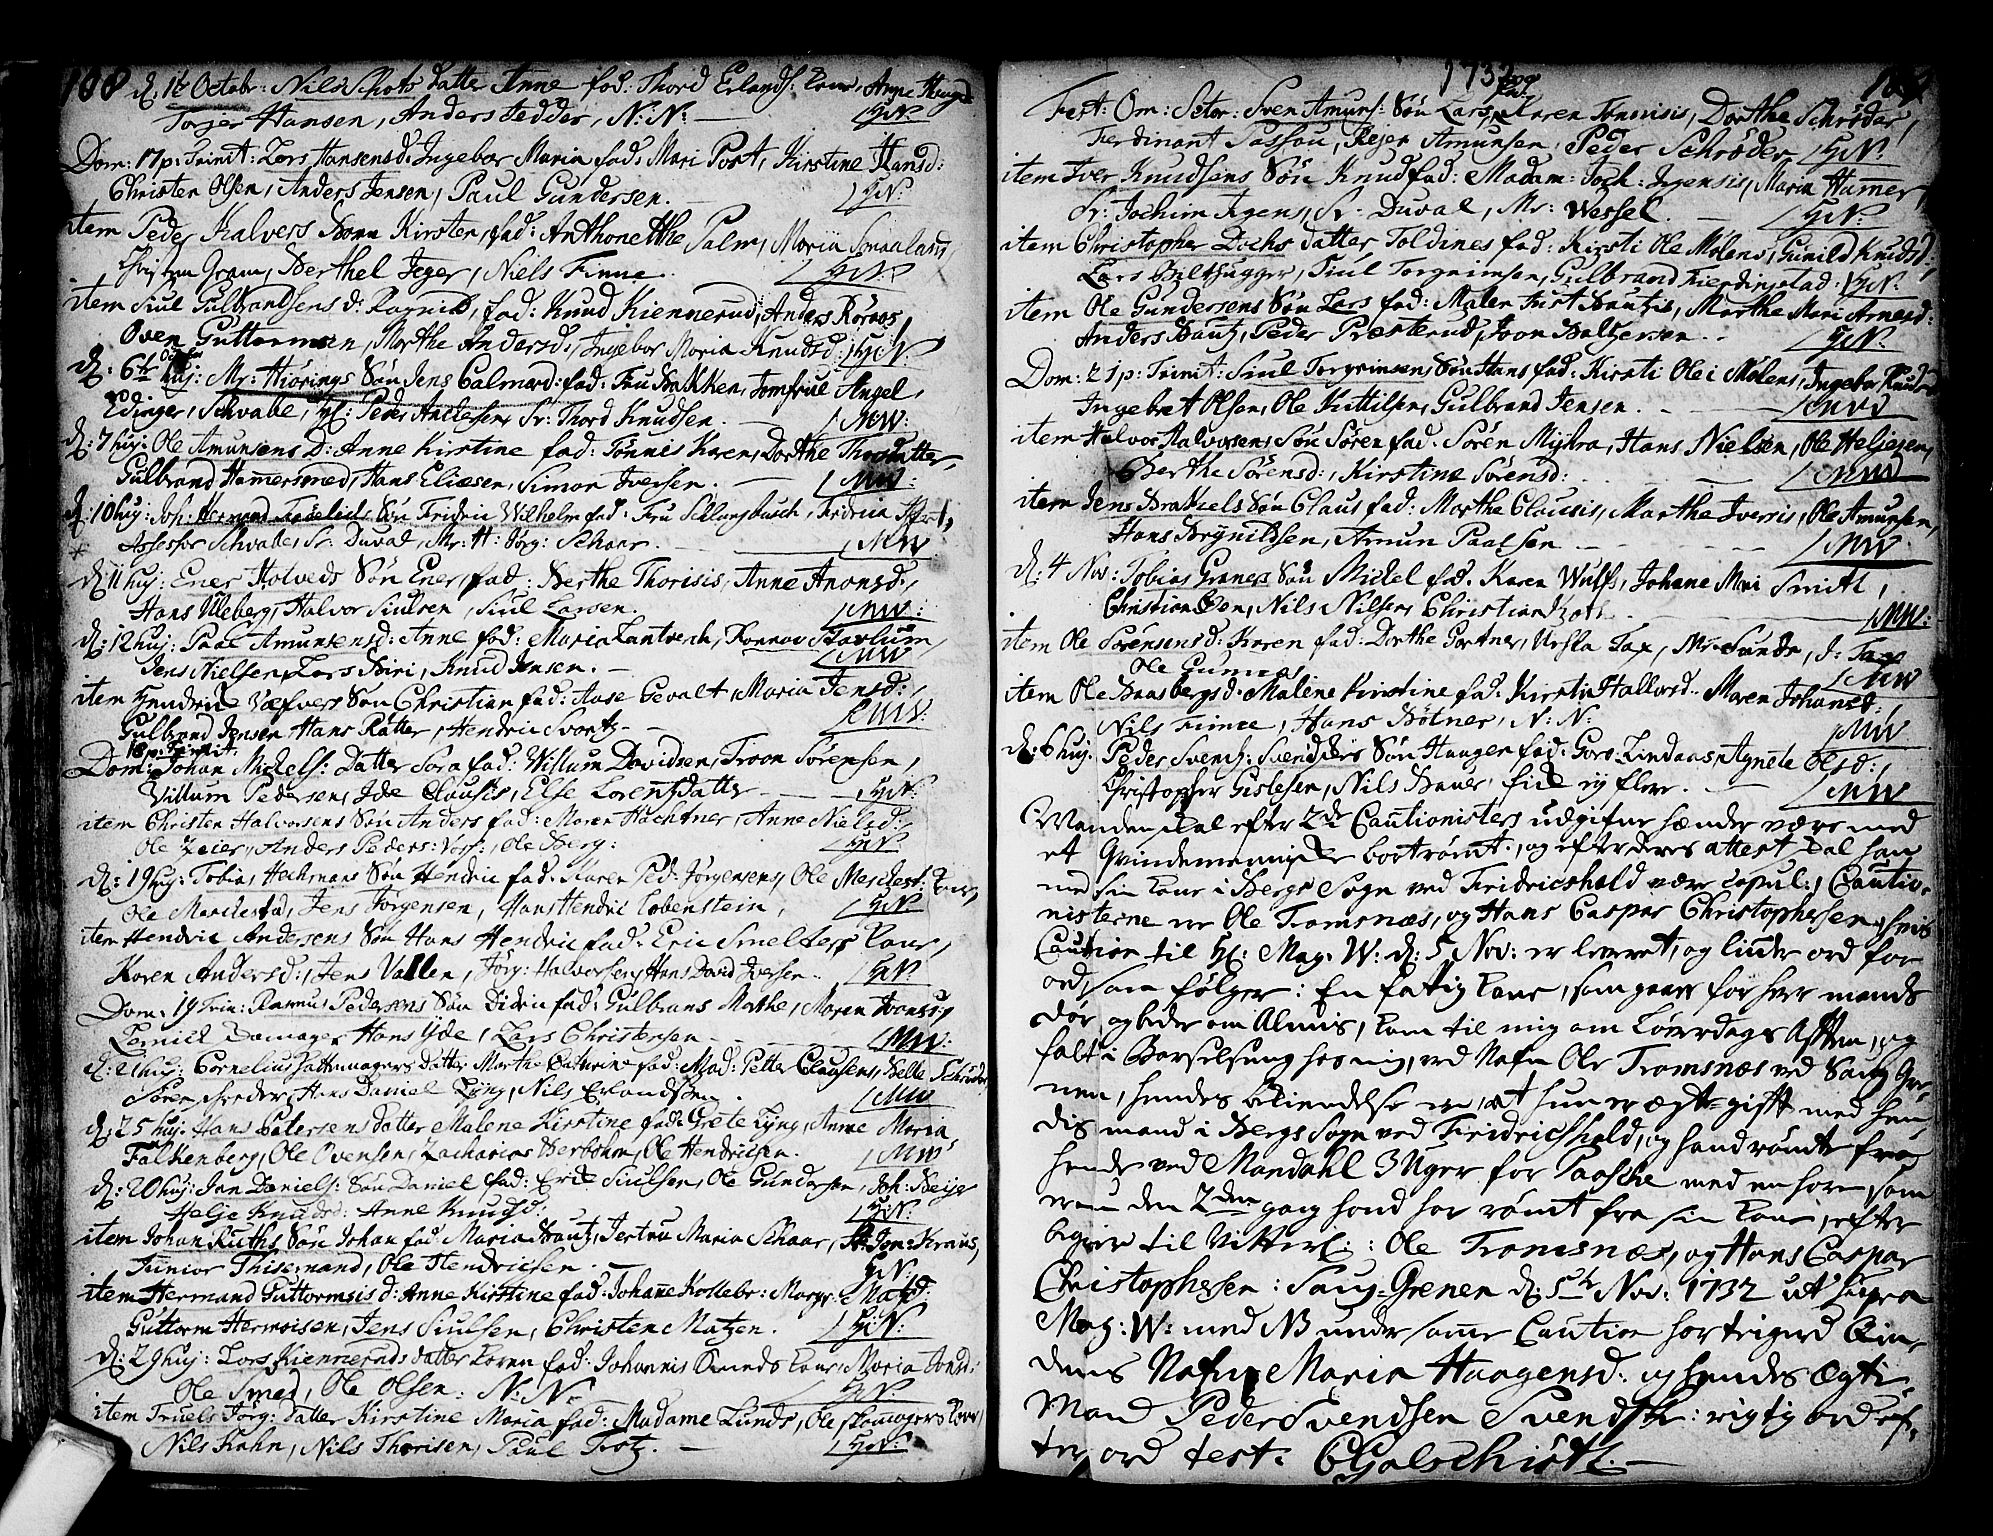 108 d. 1t Octobr: Nils Schots datter Anne fad: Thord Erlands: Kone, Anne
Torger Hansen, Anders Fedder, N: N: HN.
Dom: 17 p: Trinit: Lars Hansens d: Ingebor Maria fad: Mari Post, Kirstine Hansd:
Christen Olsen, Anders Jensen, Paul Gundersen. HN.
item Peder Kalvers Kirsten, fad: Anthonette Palm, Maria Smaaland,
Christen Gram, Berthel Jeger, Niels Finne. HN.
item Siul Gulbrandsens d: Ragnild, fad: Knud Kiennerud, Anders Rønaas,
Oven Guttormsen, Marthe Andersd:, Ingebor Maria Knudsd: HN.
d: 6te huj: Mr: Hiørings Søn Jens Calmar fad: Fru Bakken, Jomfrue Angel,
Edinger, Schvabe, Hl: Peder Andersen, Sr: Thord Knudsen. MW:
d: 7 huj: Ole Amunsens D: Anne Kirstine fad: Tønnis Karen, Dorthe Thorsdatter,
Gulbrand Hammersmed, Hans Eliæsen, Simon Iversen. MW:
d: 10 huj: Joh: Herman Søn Fridric Wilhelm fad: Fru Fridrica
Assessor Schvabe, Sr: Duval, Mr: H: Jørg: Schaar. MW
d: 11 huj: Ener Holveds Søn Ener, fad: Berthe Thorisis, Anne Anonsd:,
Hans Uleberg, Halvor Siulsen, Siul Larsen. MW:
d: 12 huj: Paal Amunsens d: Anne fad: Maria
Jens Nielsen, Lars Biri, Knud Jensen. MW
item Hendric Væfvers Søn Christian fad: Aase Evalt, Maria Jensd:,
Gulbrand Jensen, Hans Ratter, Hendric Svartz MW:
18 p: Trinit:
Dom: Johan Michels: Datter Sara fad: Willum Davidsen, Troon Sørensen,
Villum Pedersen, Ide Clausis, Else Lorentzdatter HN.
item Christen Halvorsens Søn Anders fad: Maren Hachtner, Anne Nielsd:,
Ole Zeier, Anders Peders:, Ole Berg: HN.
d: 19 huj: Tobias Hechmans Søn Hendric fad: Karen Ped: Jørgensens, Ole Merchest: Kone,
Ole Marchestad, Jens Jørgensen, Hans Hendric Lobenstein, HN.
item Hendric Andersens Søn Hans Hendric fad: Eric Smelters Kone,
Karen Andersd:, Jens Vallen, Jørg: Halvorsen, Hans David Iversen. HN.
Dom: 19 Trin: Rasmus Pedersens Søn Didric fad: Gulbrans Marthe, Maren
Hans Yde, Lars Christensen MW:
d: 21 huj: Cornelius Hattemagers datter Marthe Cathrine fad: Mad: Petter Clausens, Belle Schrøder
Søren Schrøder, Hans Daniel Lyng, Nils Erlandsen MW
d: 25 huj: Hans Petersens datter Malene Kirstine fad: Grete Lyng, Anne Maria
Falkenberg, Ole Ovensen, Zacharias Berbohm, Ole Hendricsen. MW
d: 20 huj: Jan Daniels: Søn Daniel fad: Eric Siulsen, Ole Gundersen, Joh: Beije
Helje Knudsd: Anne Knudsd: HN.
item Johan Ruths Søn Johan fad Maria Bautz, Jertru Maria Schaar, Jon: Kraus,
Junior Thisemand, Ole Hendricsen. HN.
item Hermand Guttormsis d: Anne Kirstine fad: Johane Kollebr: Margr:
Guttorm Hermoisen, Jens Siulsen, Christen Matzen. HN.
d: 29 huj: Lars Kienneruds datter Karen fad: Johannis Smeds Kone, Maria Jonsd:
Ole Smed, Ole Olsen: N: N. HN.
item Truels Jørg: datter Kirstine Maria fad: Madame Lunds, Ole Kone,
Nils Krahn, Nils Thorisen, Paul Trotz. HN.
1732
Fest: Om: Sctor: Sven Amuns: Søn Lars, Karen Tønnisis, Dorthe Schrøder,
Ferdinant Passau, Rejer Amunsen, Peder Schrøder HN.
item Iver Knudsens Søn Knud fad: Madam: Joch: Jegensis, Maria Hamer,
Sr: Jochim Jegens, Sr: Duval, Mr: Wessel. HN.
item Christopher Dochs datter Toldines fad: Kirsti Ole Mølens, Gunild Knudsd:,
Lars Hugger, Siul Torgrimsen, Gulbrand Kierdingstad: HN:
item Ole Gundersens Søn Lars fad: Malen Bautzis, Marthe Mari Arnesd:
Anders Bautz, Peder Præsterud, Joon Baltzersen. HN.
Dom: 21 p: Trinit: Siul Torgrimsens Søn Hans fad: Kirsti Ole i Mølens, Ingebor Knudsd
Ingebret Olsen, Ole Kittilsen, Gulbrand Jensen. MW
item Halvor Halvorsens Søn Søren fad. Søren Myhra, Hans Nielsen, Ole Heljesen,
Berthe Sørensd:, Kirstine Sørensd: MW
item Jens Brakels Søn Claus fad: Marthe Clausis, Marthe Iverris, Ole Amunsen,
Hans Brynildsen, Amun Paalsen MW
d: 4 Nov: Tobias Graners Søn Mickel fad. Karen Wulfs, Johane Mari Smith,
Christian Been, Nils Nilsen, Christian MW:
item Ole Sørensens d: Karen fad: Dorthe Gartner, Ursla Tax, Mr. Sande, J: Tax
Ole Gumnæs MW
item Ole Baasbergs d: Malene Kirstine fad: Kirstin Hallvorsd. Maren Johansd:,
Nils Finne, Hans Bøtner, N: N: MW
d: 6 huj: Peder Svends: Svendskes Søn Haagen fad: Goro Lindaas, Agnete Olsd:,
Christopher Gislesen, Nils Bauer, fick ey flere. MW
Manden skal efter 2de Cautionisters udgifne hænder være med
et Qvindemenniske bortrømt, og efter deres attest skal han
med sin kone i Bergs Sogn ved Fridricshald være copul:, Cautio-
nisterne er Ole Tromsnæs, og Hans Caspar Christophersen, hvis
Caution til Hl: Mag. W: d: 5 Nov: er leveret, og linder ord for
ord, som følger: En fattig Kone, som gaar for hver mands
dør og beder om Almis, kom til mig om Løverdags Afften, og
falt i Barselseng hos mig, ved Nafn Ole Tromsnæs ved Saug Gre-
nen, hendes bekiendelse er, at hun er ægte-gifft med hen-
dis mand i Bergs Sogn ved Fridrichshald, og hand rømte fra
hende ved Mandahl 3 Uger for Paaske med en hore, som
den 2den gang hand har rømt fra sin Kone, efter
begier til Vitterl: Ole Tromsnæs, og Hans Caspar
Christophersen: Saug-Grenen d: 5te Nov: 1732 ut supra
Mag: W: med NB under same Caution har tegned Qvin-
dens Nafn Maria Haagensd. og hendes Ægte
Mand Peder Svendsen Svendske: rigtig ord ef-
ter ord test: CGjelschiøtt.